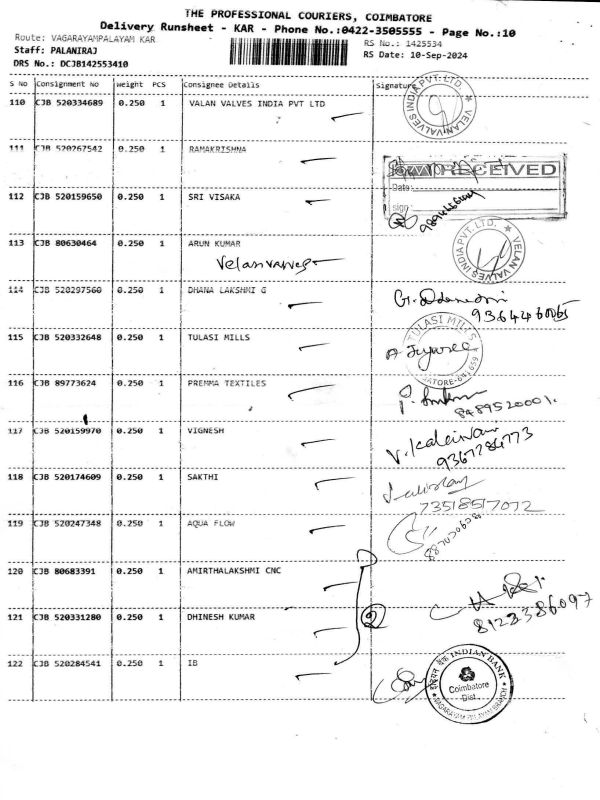 THE PROFESSIONAL COURIERS, COIMBATORE
Delivery Runsheet - KAR - Phone No.:0422-3505555 - Page No.:10
Route: VAGARAYAMPALAYAM KAR RS No.: 1425534
Staff: PALANIRAJ RS Date: 10-Sep-2024
DRS No.: DCJB142553410
S No Consignment No Weight PCS Consignee Details Signature
110 CJB 520334689 0.250 1 VALAN VALVES INDIA PVT LTD
VELAN VALVES INDIA PVT. LTD.
111 CJB 520267542 0.250 1 RAMAKRISHNA
RECEIVED
Date:
sign:
112 CJB 520159650 0.250 1 SRI VISAKA
113 CJB 80630464 0.250 1 ARUN KUMAR
Velan valves
VELAN VALVES INDIA PVT. LTD.
114 CJB 520297560 0.250 1 DHANA LAKSHMI G
9364460065
115 CJB 520332648 0.250 1 TULASI MILLS
TULASI MILLS
116 CJB 89773624 0.250 1 PREMMA TEXTILES
8489520001.
117 CJB 520159970 0.250 1 VIGNESH
V. Kaleivani
9367284773
118 CJB 520174609 0.250 1 SAKTHI
73518517072
119 CJB 520247348 0.250 1 AQUA FLOW
120 CJB 80683391 0.250 1 AMIRTHALAKSHMI CNC
121 CJB 520331280 0.250 1 DHINESH KUMAR
2
8122386097
122 CJB 520284541 0.250 1 IB
INDIAN BANK
Coimbatore
Dist.